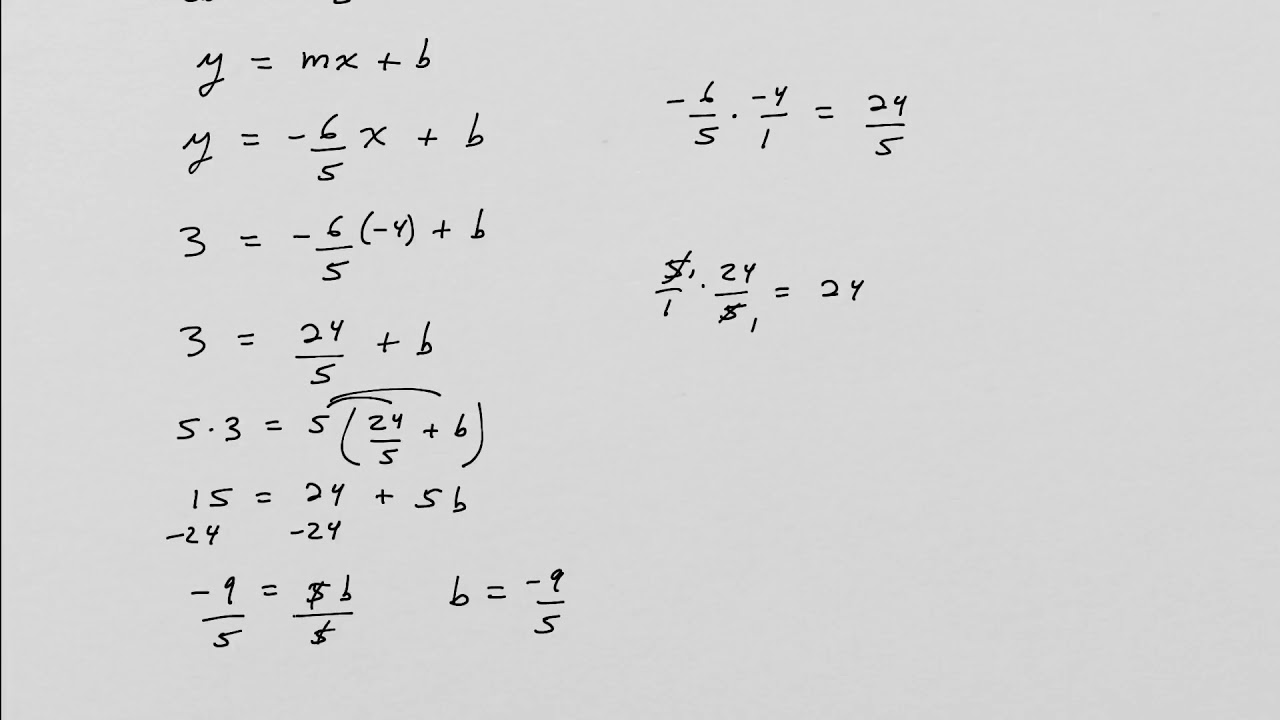 y = mx + b
y = -6/5 x + b
3 = -6/5 (-4) + b
3 = 24/5 + b
5·3 = 5(24/5 + b)
15 = 24 + 5b
-24 -24
-9/5 = 5b/5 b = -9/5
-6/5 · -4/1 = 24/5
5/1 1 · 24/5 1 = 24